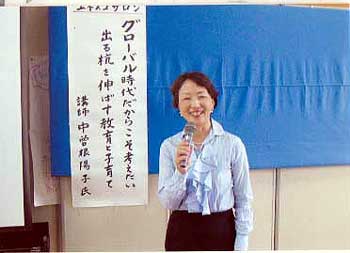 エキスコサロン
グローバル時代だからこそ考えたい
出る杭を伸ばす教育と子育て
講師 中曽根陽子氏